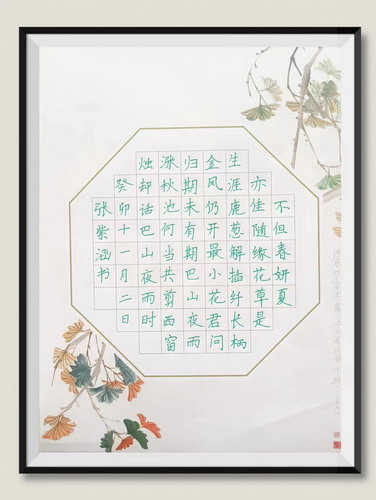 不但春妍夏
亦佳随缘花草是
生涯鹿葱解插纤长柄
金风仍开最小花君问
归期未有期巴山夜雨
涨秋池何当共剪西窗
烛却话巴山夜雨时
癸卯十一月二日
张紫涵书